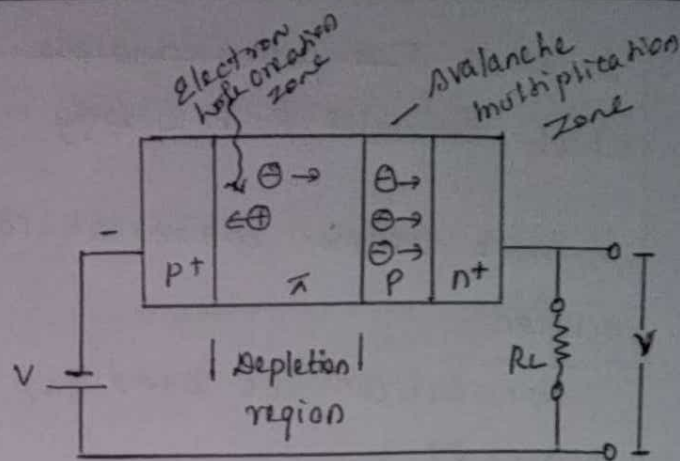 Electron
hole creation
zone
Avalanche
multiplication
zone
⊖→ ⊖→
←⊕ ⊖→
⊖→
-
p+ π P n+
V
Depletion
region
RL
V